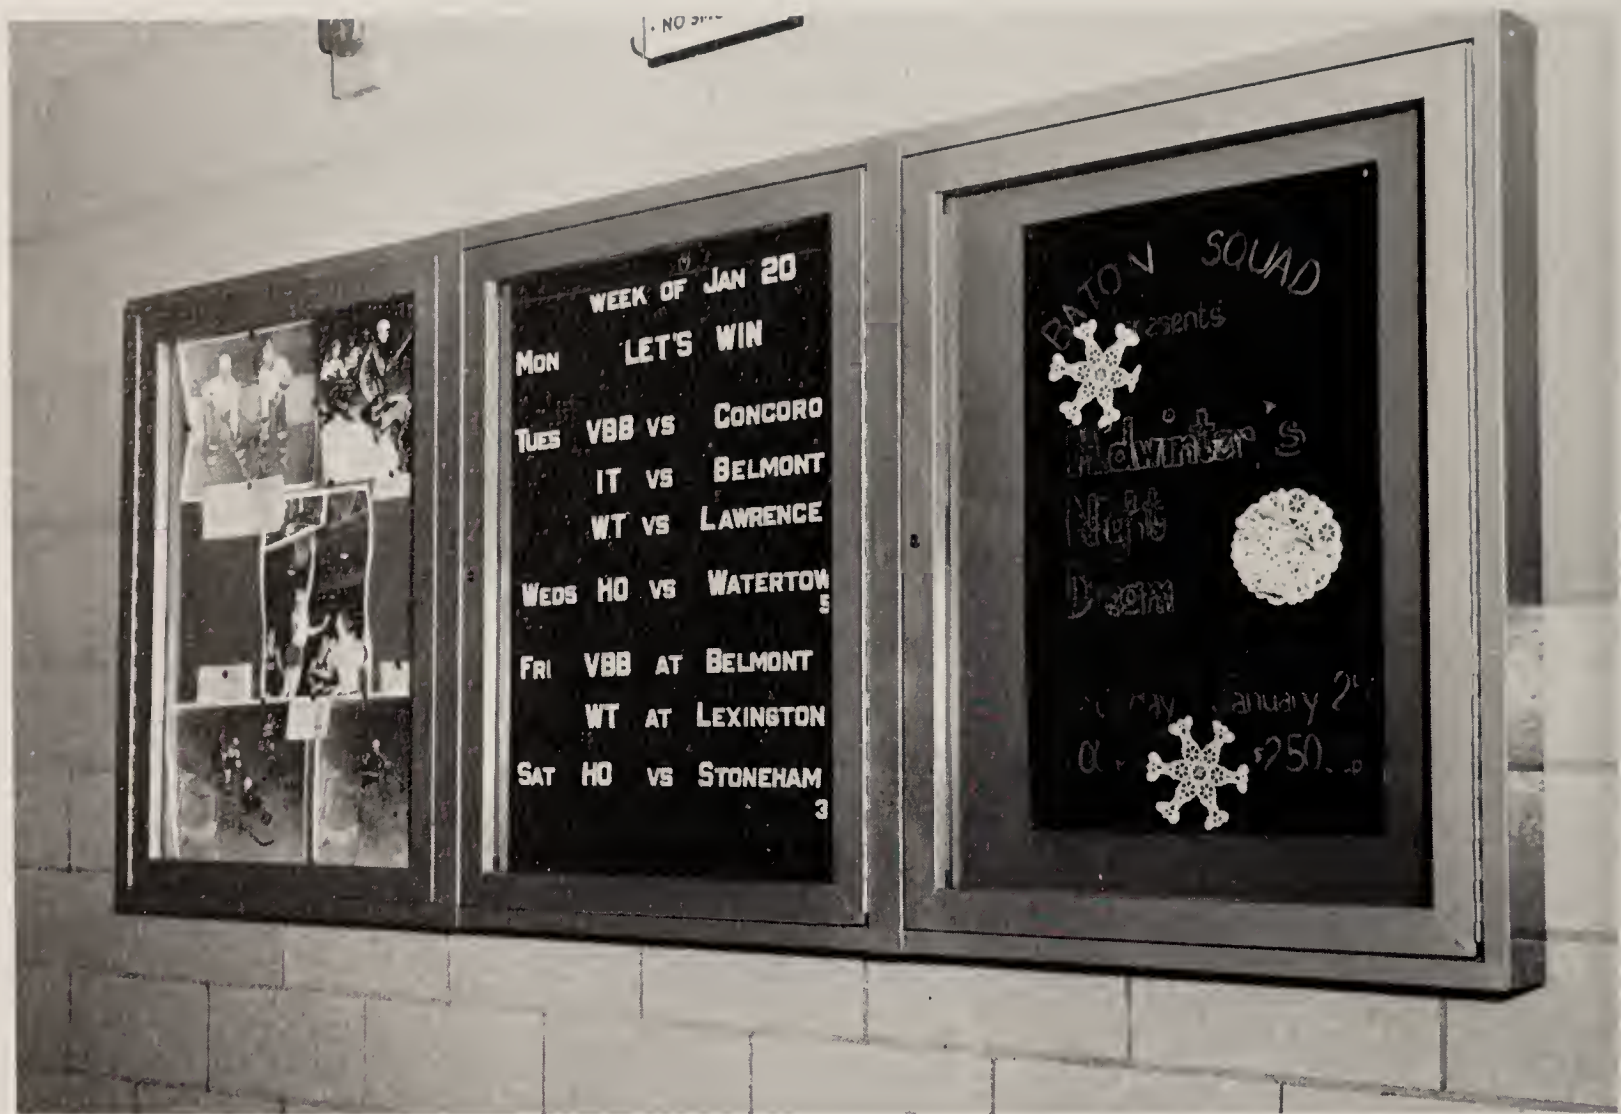 NO
WEEK OF JAN 20
MON LET'S WIN
TUES VBB VS CONCORO
IT VS BELMONT
WT VS LAWRENCE
WEDS HO VS WATERTOW
5
FRI VBB AT BELMONT
WT AT LEXINGTON
SAT HO VS STONEHAM
3
BATON SQUAD
Midwinter's
Night